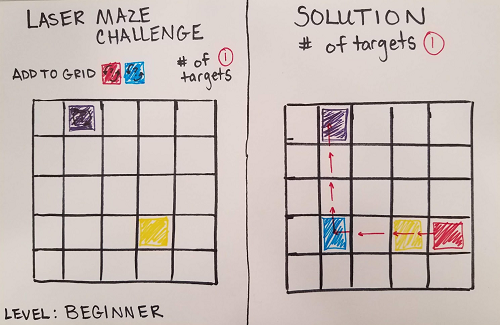 LASER MAZE
CHALLENGE
ADD TO GRID
# OF ①
targets
LEVEL: BEGINNER
SOLUTION
# of targets ①